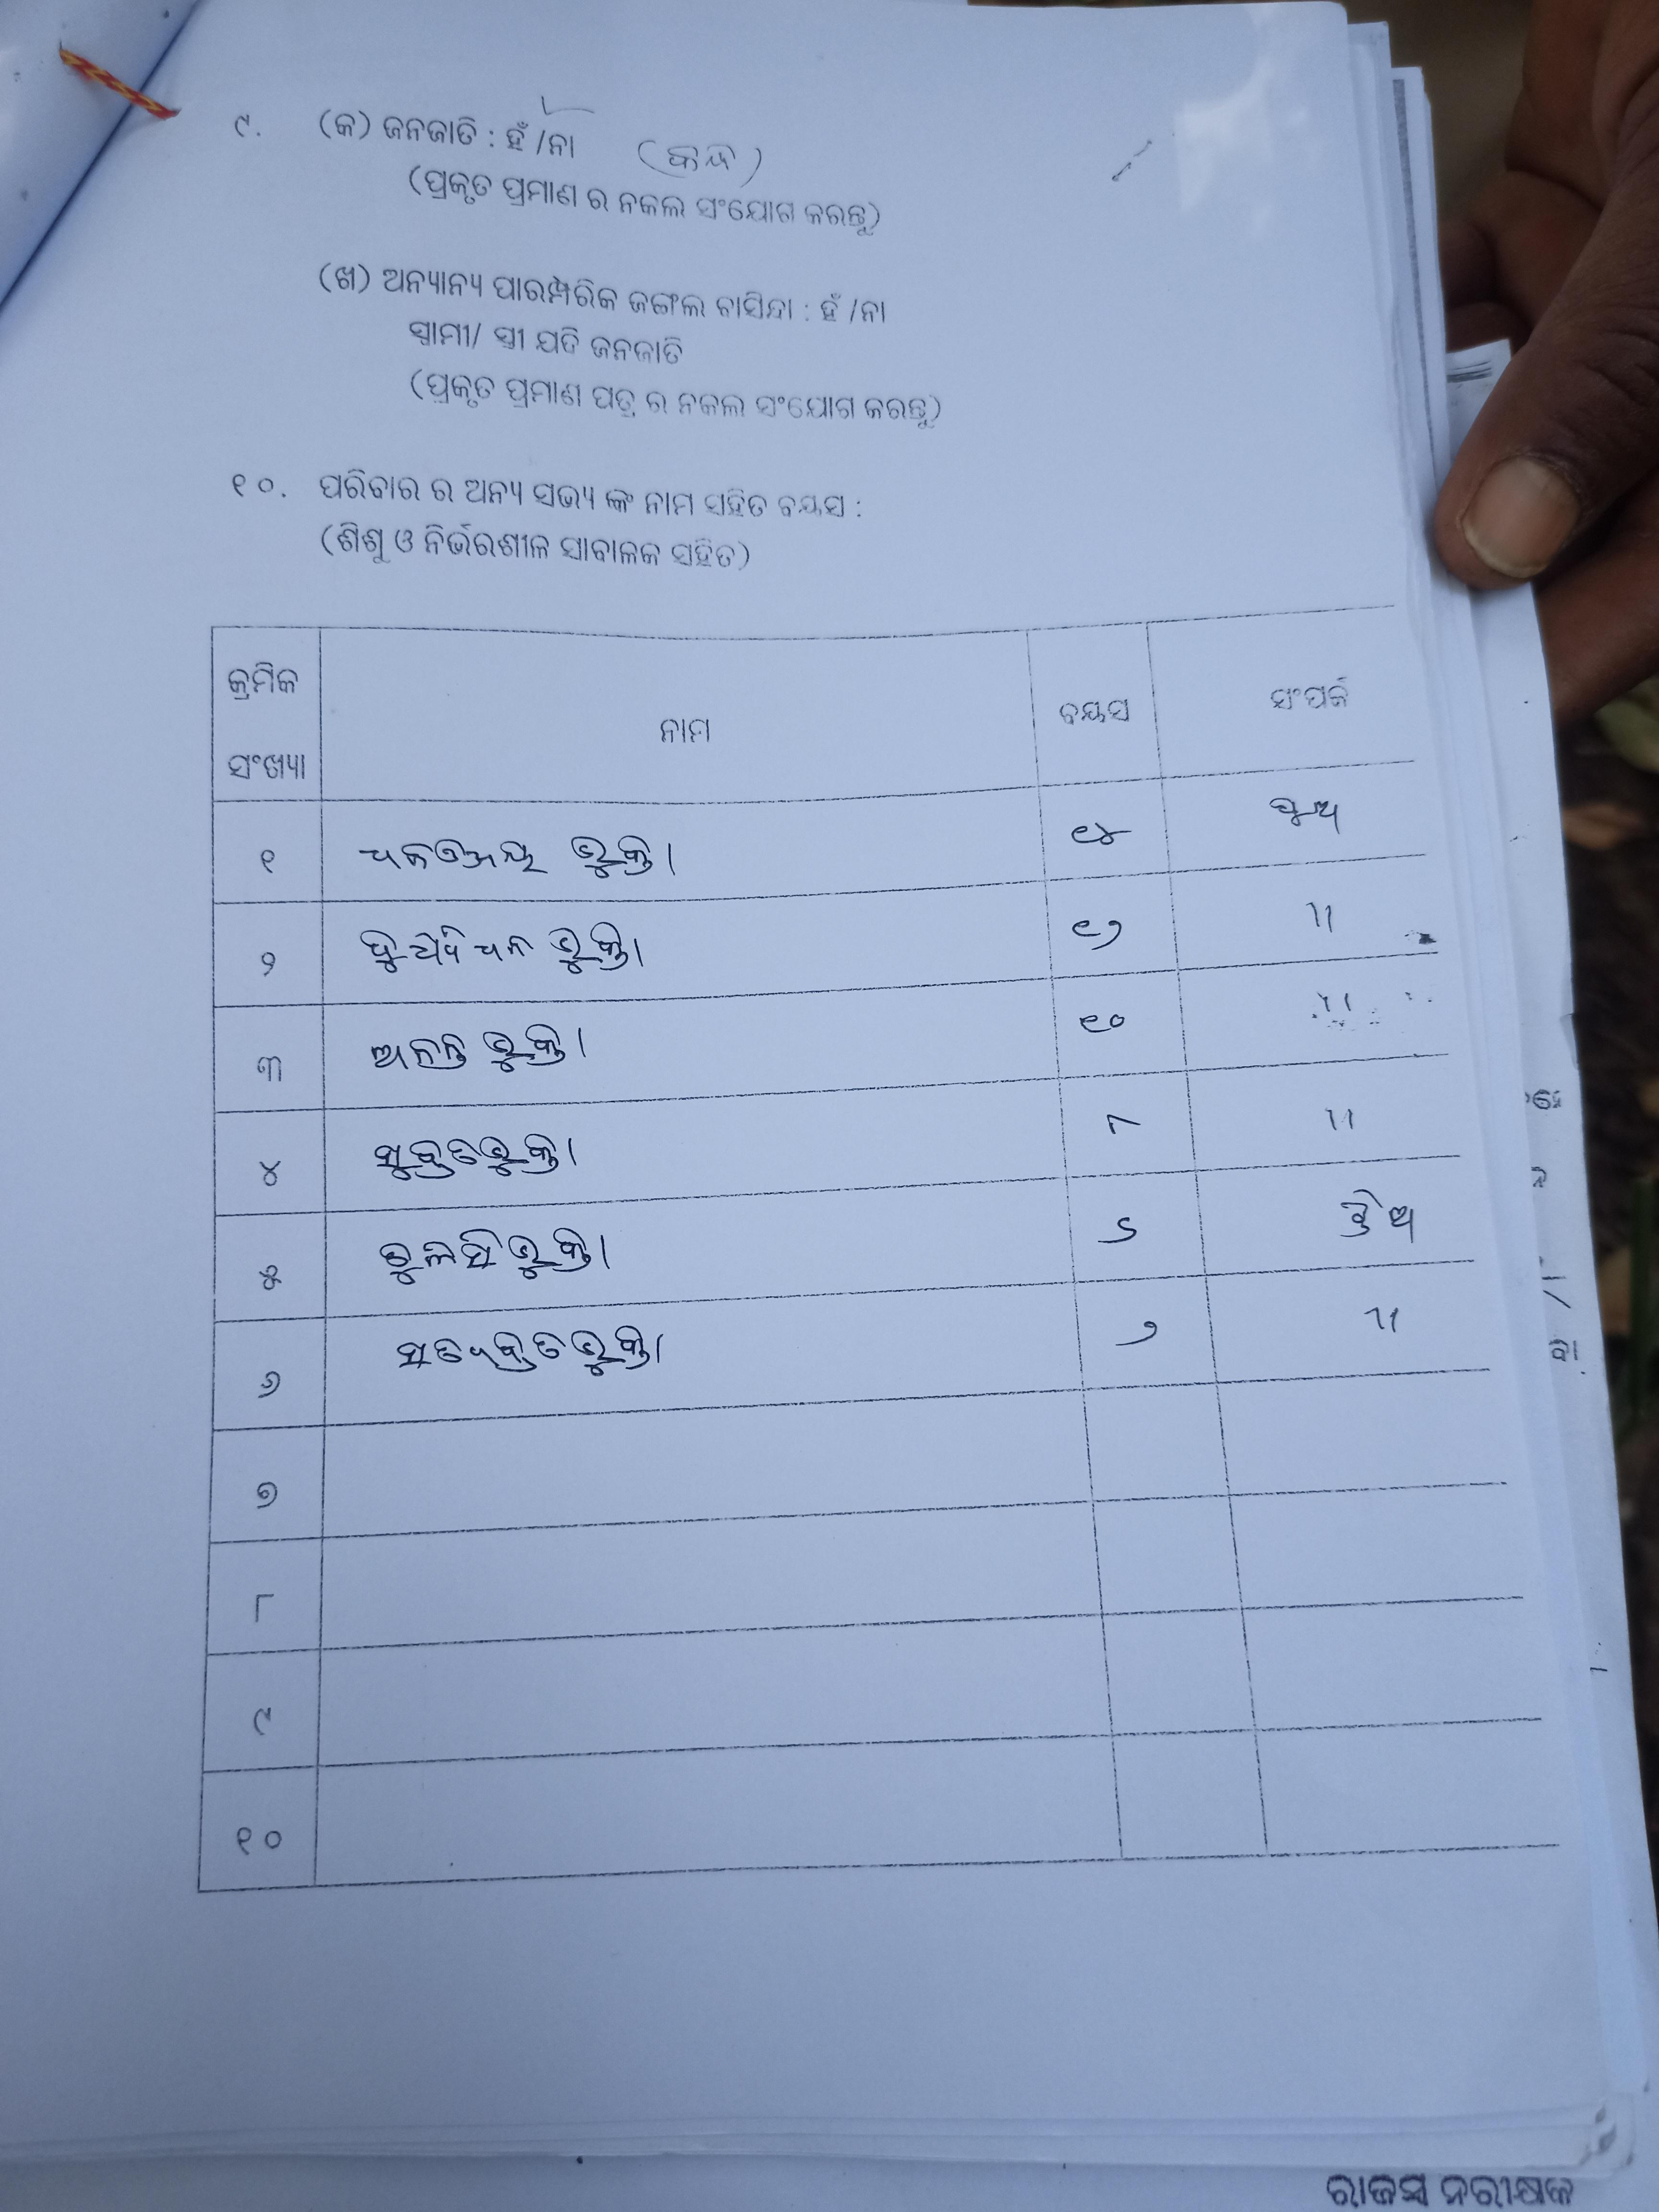 ୯. (କ) ଜନଜାତି : ହଁ /ନା (କନ୍ଧ)
(ପ୍ରକୃତ ପ୍ରମାଣ ର ନକଲ ସଂଯୋଗ କରନ୍ତୁ)
(ଖ) ଅନ୍ୟାନ୍ୟ ପାରମ୍ପରିକ ଜଙ୍ଗଲ ବାସିନ୍ଦା : ହଁ /ନା
ସ୍ୱାମୀ/ ସ୍ତ୍ରୀ ଯଦି ଜନଜାତି
(ପ୍ରକୃତ ପ୍ରମାଣ ପତ୍ର ର ନକଲ ସଂଯୋଗ କରନ୍ତୁ)
୧୦. ପରିବାର ର ଅନ୍ୟ ସଭ୍ୟ ଙ୍କ ନାମ ସହିତ ବୟସ :
(ଶିଶୁ ଓ ନିର୍ଭରଶୀଳ ସାବାଳକ ସହିତ)
କ୍ରମିକ ସଂଖ୍ୟା ନାମ ବୟସ ସଂପର୍କ
୧ ଭୁକ୍ତା ୧୪ ପୁଅ
୨ ଭୁକ୍ତା ୧୨ "
୩ ଅନନ୍ତ ଭୁକ୍ତା ୧୦ "
୪ ଭୁକ୍ତା ୮ "
୫ ତୁଲସି ଭୁକ୍ତା ୫ ଝିଅ
୬ ଭୁକ୍ତା ୨ "
୭
୮
୯
୧୦
ରାଜସ୍ୱ ନିରୀକ୍ଷକ